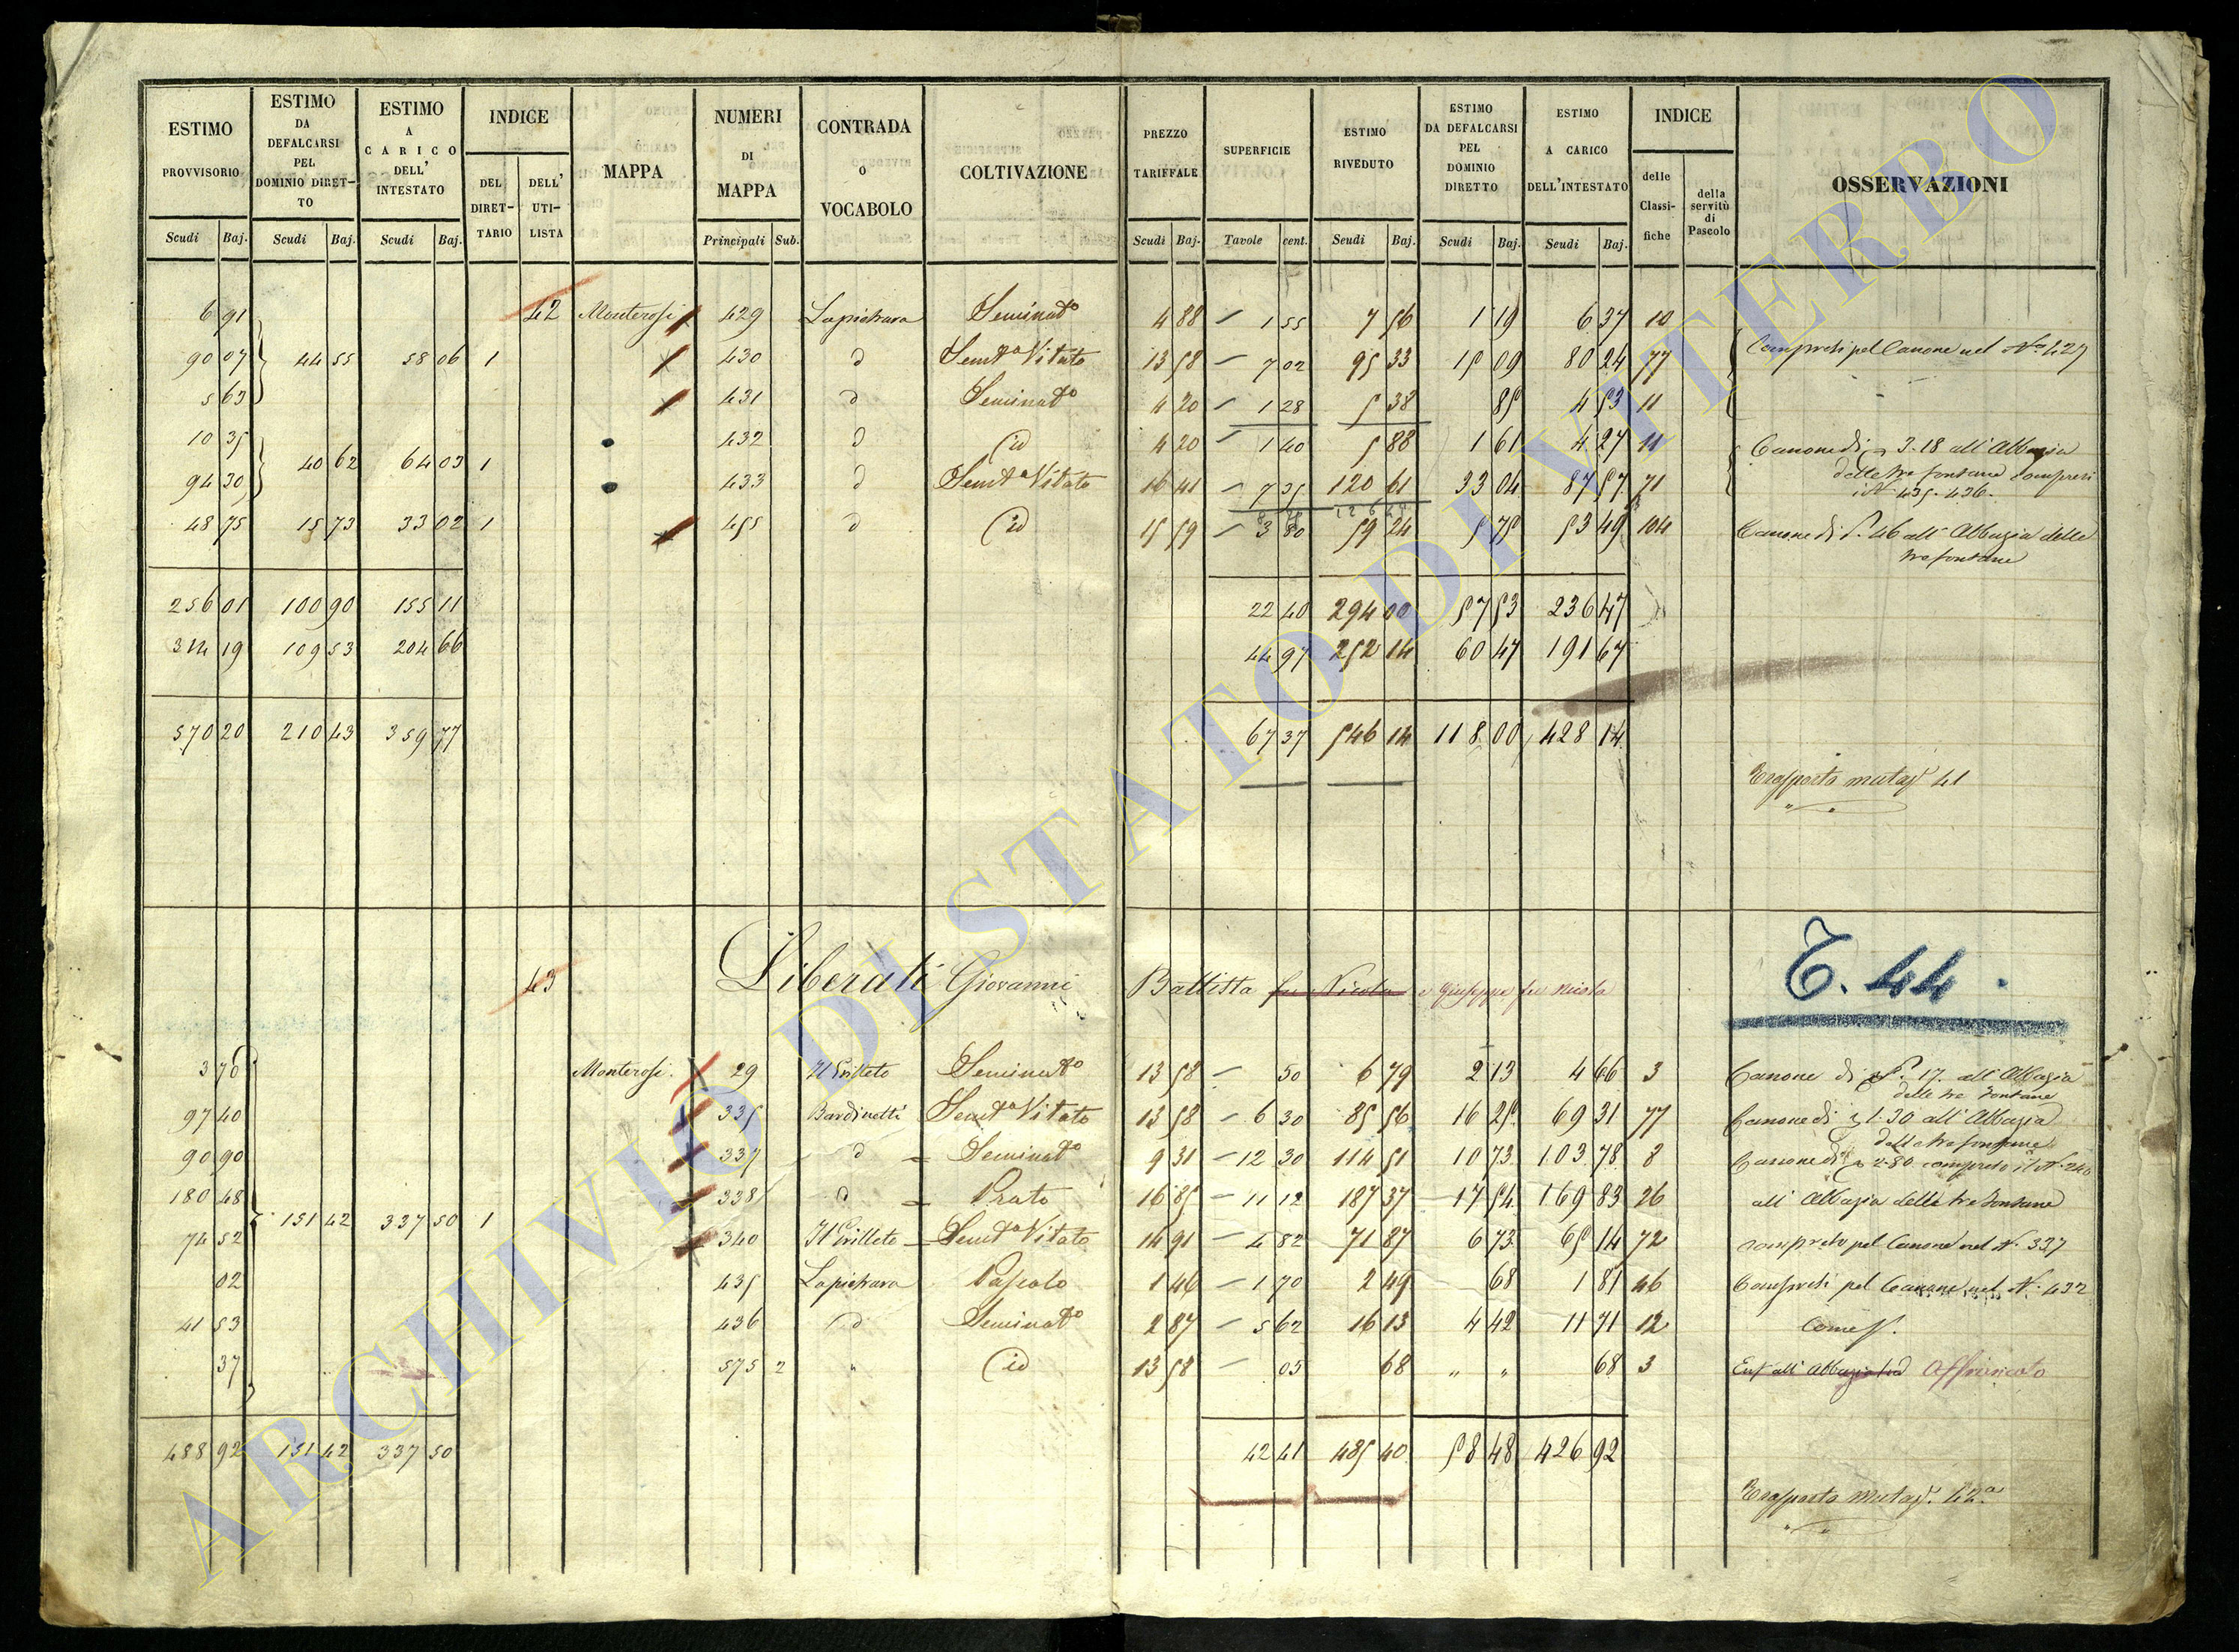 ESTIMO PROVVISORIO | ESTIMO DA DEFALCARSI PEL DOMINIO DIRET-TO | ESTIMO A CARICO DELL' INTESTATO | INDICE | MAPPA | NUMERI DI MAPPA | CONTRADA O VOCABOLO | COLTIVAZIONE | PREZZO TARIFFALE | SUPERFICIE | ESTIMO RIVEDUTO | ESTIMO DA DEFALCARSI PEL DOMINIO DIRETTO | ESTIMO A CARICO DELL'INTESTATO | INDICE | OSSERVAZIONI
DEL DIRET-TARIO | DELL' UTI-LISTA | delle Classi-fiche | della servitù di Pascolo
Scudi Baj. | Scudi Baj. | Scudi Baj. | Principali Sub. | Scudi Baj. | Tavole cent. | Scudi Baj. | Scudi Baj. | Scudi Baj.
6 91 | 42 | Monterosi | 429 | Lapichara | Seminato | 4 88 | 1 55 | 7 56 | 1 19 | 6 37 | 10
90 07 | 44 55 | 58 06 | 1 | 430 | d | Semto Vitato | 13 58 | 7 02 | 95 33 | 15 09 | 80 24 | 77 | Compresi pel Canone nel No 427
5 63 | 431 | d | Seminato | 4 20 | 1 28 | 5 38 | 85 | 4 53 | 11
10 35 | 432 | d | id | 4 20 | 1 40 | 5 88 | 1 61 | 4 27 | 11 | Canone di 3-18 all'Abbazia
40 62 | 64 03 | 1 | delle tre fontane compresi
94 30 | 433 | d | Semto Vitato | 16 41 | 7 35 | 120 61 | 33 04 | 87 57 | 71 | i N. 435. 436.
48 75 | 15 73 | 33 02 | 1 | 455 | d | id | 15 59 | 3 80 | 59 24 | 5 75 | 53 49 | 104 | Canone di 46 all'Abbazia delle
tre fontane
256 01 | 100 90 | 155 11 | 22 40 | 294 00 | 57 53 | 236 47
314 19 | 109 53 | 204 66 | 44 97 | 252 14 | 60 47 | 191 67
570 20 | 210 43 | 359 77 | 67 37 | 546 14 | 118 00 | 428 14
Trasporto mutaz. 41
T. 44.
43 | Liberati Giovanni Battista fu Nicola e Giuseppe fu Nicola
3 70 | Monterosi. | 29 | Il Grilleto | Seminato | 13 58 | 50 | 6 79 | 2 13 | 4 66 | 3 | Canone di 17. all'Abbazia
delle tre Fontane
97 40 | 335 | Bardinetti | Semto Vitato | 13 58 | 6 30 | 85 56 | 16 25 | 69 31 | 77 | Canone di 1.30 all'Abbazia
delle tre fontane
90 90 | 337 | d | Seminato | 9 31 | 12 30 | 114 51 | 10 73 | 103 78 | 8 | Canone di 2-80 compreso il N. 340
180 48 | 338 | d | Prato | 16 85 | 11 12 | 187 37 | 17 54 | 169 83 | 26 | all'Abbazia delle tre Fontane
151 42 | 337 50 | 1
74 52 | 340 | Il Grilleto | Semto Vitato | 14 91 | 4 82 | 71 87 | 6 73 | 65 14 | 72 | compreso pel Canone nel N. 337
02 | 435 | Lapichara | Pascolo | 1 46 | 1 70 | 2 49 | 68 | 1 81 | 46 | Compresi pel Canone nel N. 432
41 53 | 436 | d | Seminato | 2 87 | 5 62 | 16 13 | 4 42 | 11 71 | 12 | Come S.
37 | 575 2 | " | id | 13 58 | 05 | 68 | " " | 68 | 3 | Enf all'Abbazia sud Affrancato
488 92 | 151 42 | 337 50 | 42 41 | 485 40 | 58 48 | 426 92
Trasporto mutaz. 42.a
ARCHIVIO DI STATO DI VITERBO